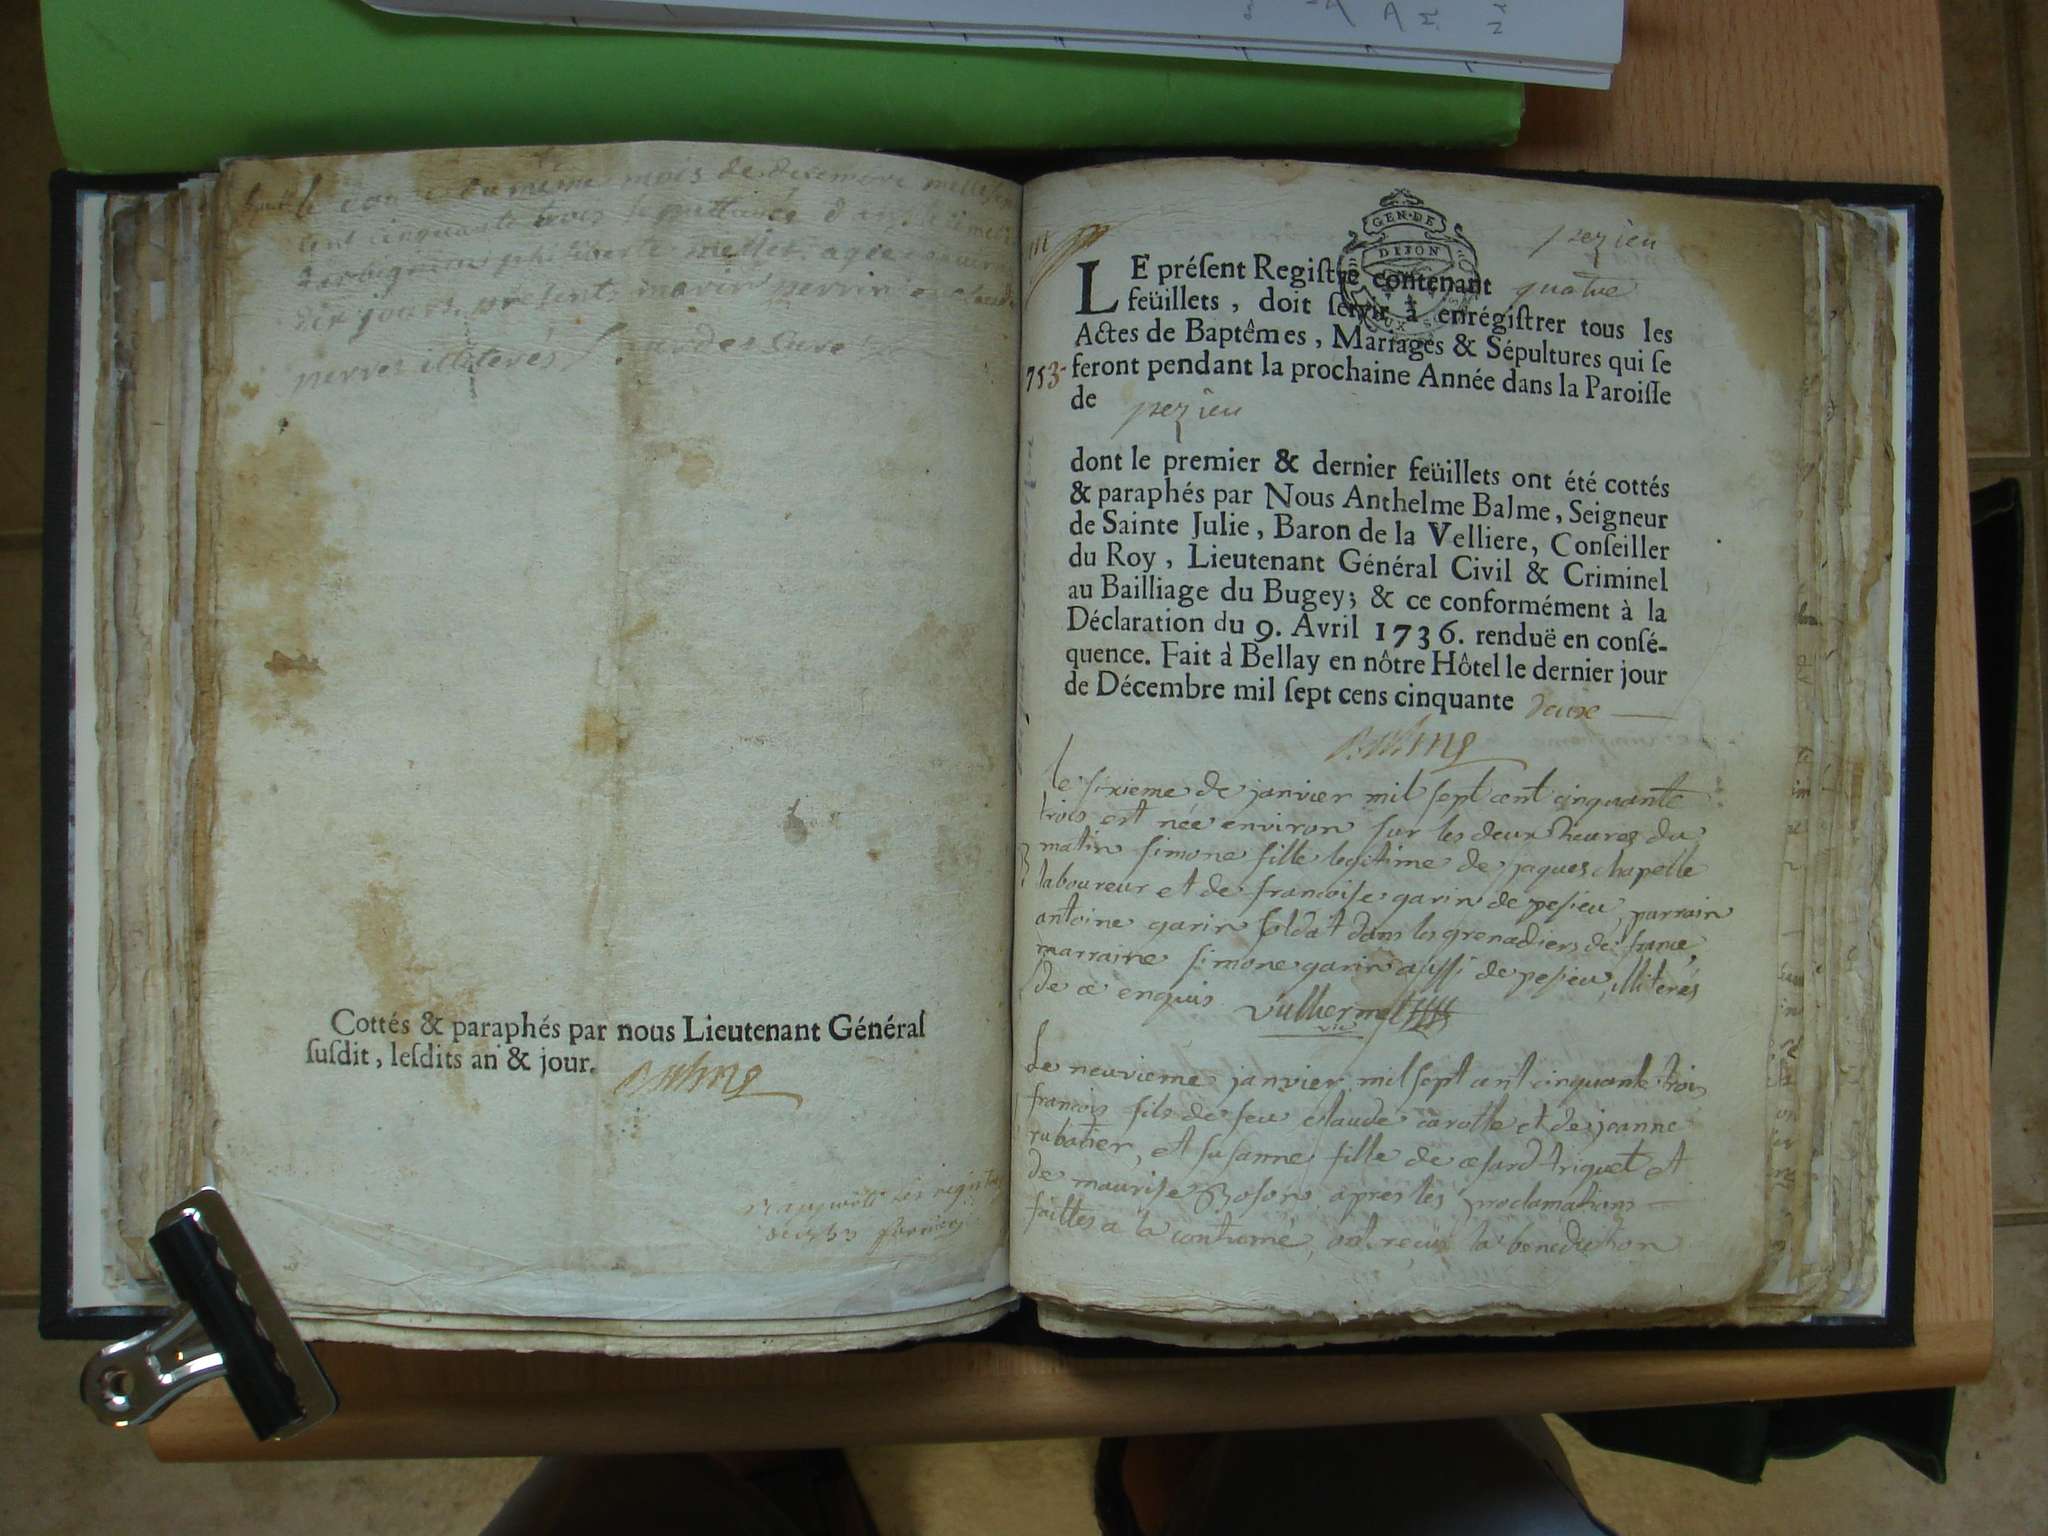 du même mois de decembre mille sept
cent cinquante trois
dix jours presents marin perrin
perret illiterés curé
Cottés & paraphés par nous Lieutenant Général
ſuſdit, leſdits an & jour.
GEN·DE
DIJON
pezieu
LE préſent Regiſtre contenant quatre
feüillets, doit ſervir à enrégiſtrer tous les
Actes de Baptêmes, Mariages & Sépultures qui ſe
753
feront pendant la prochaine Année dans la Paroiſſe
de pezieu
dont le premier & dernier feüillets ont été cottés
& paraphés par Nous Anthelme Balme, Seigneur
de Sainte Julie, Baron de la Velliere, Conſeiller
du Roy, Lieutenant Général Civil & Criminel
au Bailliage du Bugey; & ce conformément à la
Déclaration du 9. Avril 1736. renduë en conſé-
quence. Fait à Bellay en nôtre Hôtel le dernier jour
de Décembre mil ſept cens cinquante deux
le sixieme de janvier mil sept cent cinquante
trois est née environ sur les deux heures du
matin simone fille legitime de jaques chapelle
laboureur et de francoise garin de pesieu, parrain
antoine garin soldat dans les grenadiers de france,
marraine simone garin aussi de pesieu, illiterés
de ce enquis Vulliermet
vic
Le neuvieme janvier mil sept cent cinquante trois
francois fils de feu claude carotte et de jeanne
rubatier, et susanne fille de cesard triquet et
de maurise Boson apres les proclamations
faittes a la coutume, ont recüs la benediction